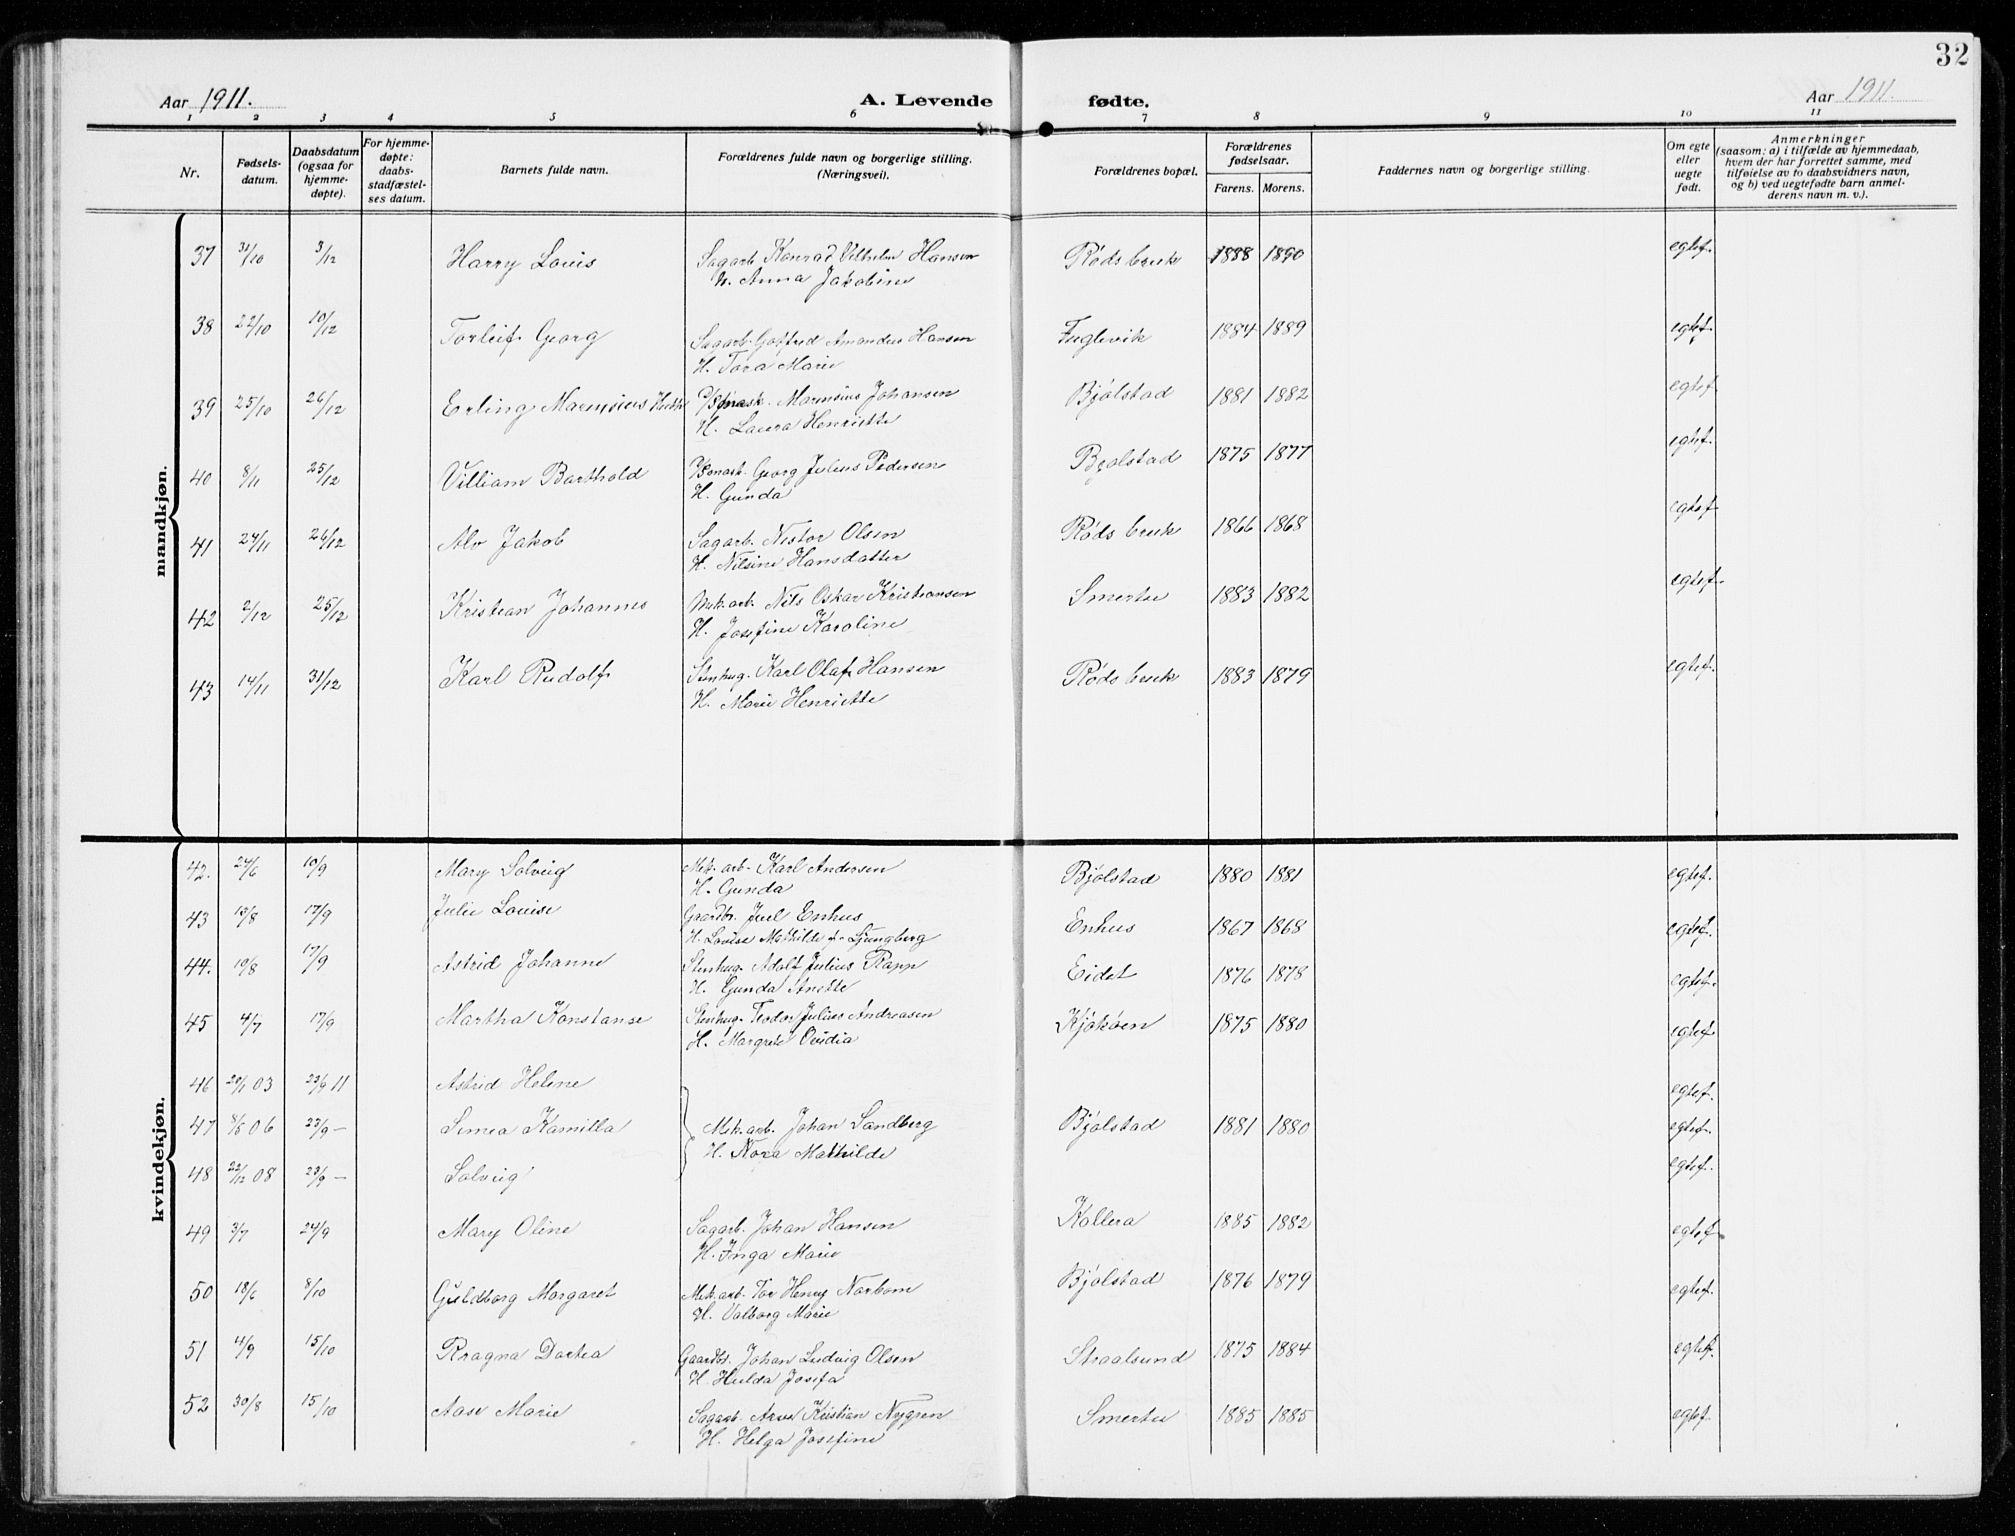 32
Aar 1911. A. Levende fødte. Aar 1911.
1 2 3 4 5 6 7 8 9 10 11
Nr.
Fødsels-
datum.
Daabsdatum
(ogsaa for
hjemme-
døpte).
For hjemme-
døpte:
daabs-
stadfæstel-
ses datum.
Barnets fulde navn.
Forældrenes fulde navn og borgerlige stilling.
(Næringsvei).
Forældrenes bopæl.
Forældrenes
fødselsaar.
Farens. Morens.
Faddernes navn og borgerlige stilling.
Om egte
eller
uegte
født.
Anmerkninger
(saasom: a) i tilfælde av hjemmedaab,
hvem der har forrettet samme, med
tilføielse av to daabsvidners navn,
og b) ved uegtefødte barn anmel-
derens navn m. v.).
mandkjøn.
37 31/10 3/12 Harry Louis Sagarb. Konrad Vilhelm Hansen Røds bruk 1888 1890 egtef.
H. Anna Jakobine
38 22/10 10/12 Torleif Georg Sagarb. Gotfred Amandus Hansen Fuglevik 1884 1889 egtef.
H. Tora Marie
39 25/10 26/12 Erling Marensius Marensius Johansen Bjølstad 1881 1882 egtef.
H. Laura Henriette
40 8/11 25/12 Villiam Barthold Georg Julius Pedersen Bjølstad 1875 1877 egtef.
H. Gunda
41 24/11 26/12 Alv Jakob Sagarb. Nestor Olsen Røds bruk 1866 1868 egtef.
H. Nilsine Hansdatter
42 2/12 25/12 Kristian Johannes Mek. arb. Nils Oskar Kristiansen Smertu 1883 1882 egtef.
H. Josefine Karoline
43 14/11 31/12 Karl Rudolf Stenhug. Karl Olaf Hansen Røds bruk 1883 1879 egtef.
H. Marie Henriette
kvindekjøn.
42. 24/6 10/9 Mary Solveig Mek. arb. Karl Andersen Bjølstad 1880 1881 egtef.
H. Gunda
43 13/8 17/9 Julie Louise Gaardbr. Juel Enhus Enhus 1867 1868 egtef.
H. Louise Mathilde f. Ljungberg
44. 10/8 17/9 Astrid Johanne Stenhug. Adolf Julius Rapp Eidet 1876 1878 egtef.
H. Gunda Anette
45 4/7 17/9 Martha Konstanse Stenhug. Teodor Julius Andreasen Kjøkøen 1875 1880 egtef.
H. Margrete Ovidia
46 20/1 03 23/9 11 Astrid Helene egtef.
47 8/5 06 23/9 – Simea Kamilla Mek. arb. Johan Sandberg Bjølstad 1881 1880 egtef.
H. Nora Mathilde
48 22/12 08 23/9 – Solveig egtef.
49 3/7 24/9 Mary Oline Sagarb. Johan Hansen Kallera 1885 1882 egtef.
H. Inga Marie
50 18/6 8/10 Guldborg Margaret Mek. arb. Tor Henry Norbom Bjølstad 1876 1879 egtef.
H. Valborg Marie
51 4/9 15/10 Ragna Dortea Gaardb. Johan Ludvig Olsen Straalsund 1875 1884 egtef.
H. Hulda Josefa
52 30/8 15/10 Aase Marie Sagarb. Kristian Nygren Smertu 1885 1885 egtef.
H. Helga Josefine